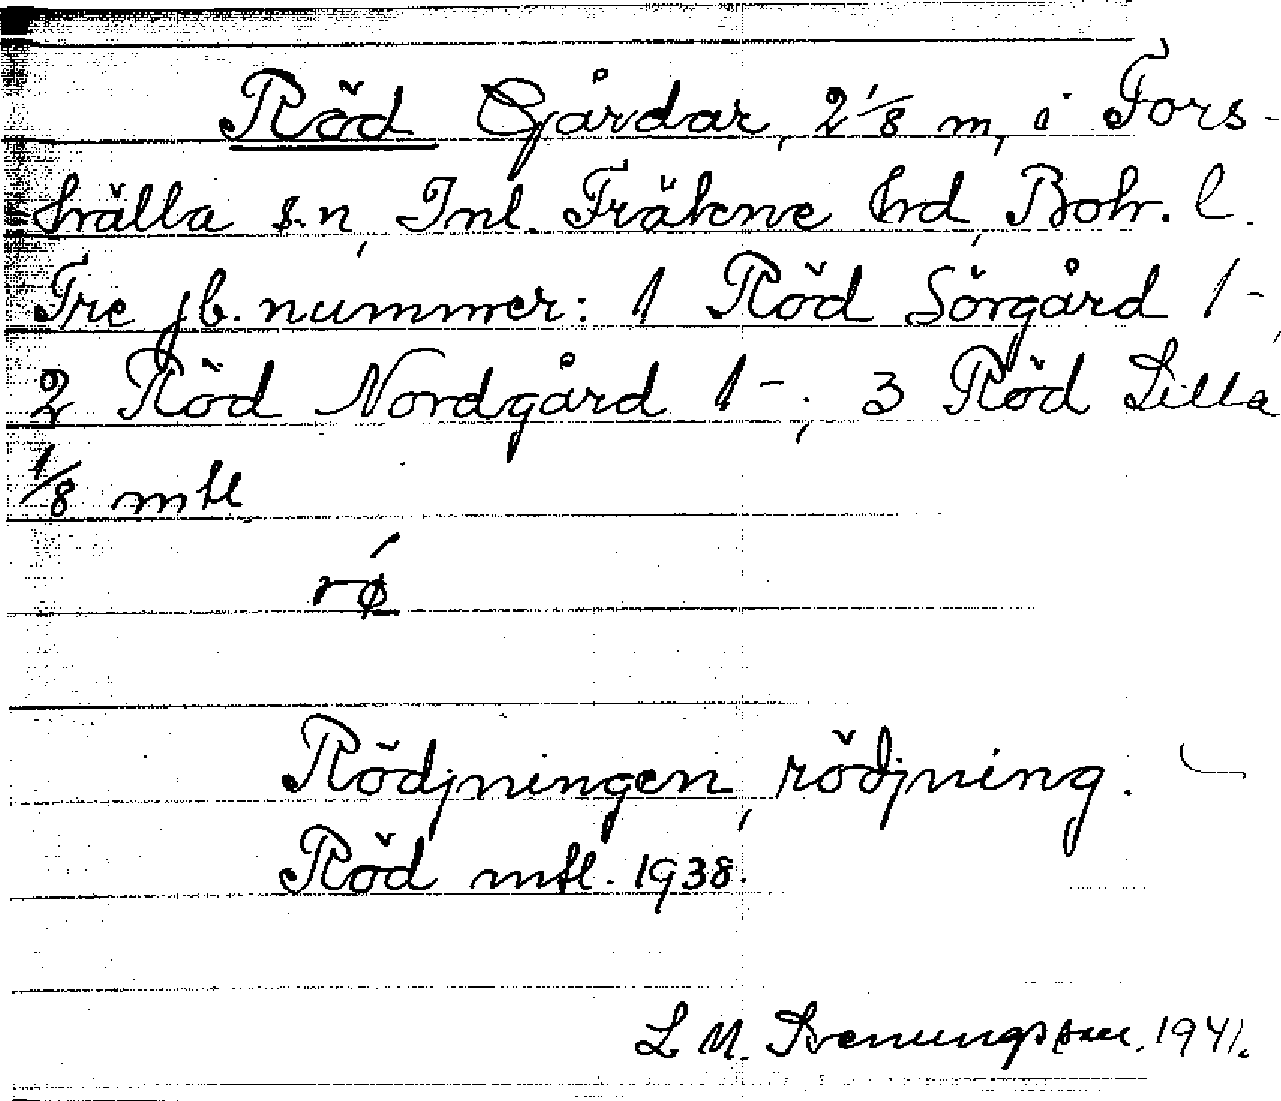 Röd Gårdar, 2 1/8 m, i Fors-
hälla s.n, Inl. Fräkne hrd, Boh. l.
Tre jb. nummer: 1 Röd Sörgård 1-,
2 Röd Nordgård 1-; 3 Röd Lilla
1/8 mtl
rǿ
Rödjningen, rödjning.
Röd mtl. 1938.
L M. Svenungsson. 1941.